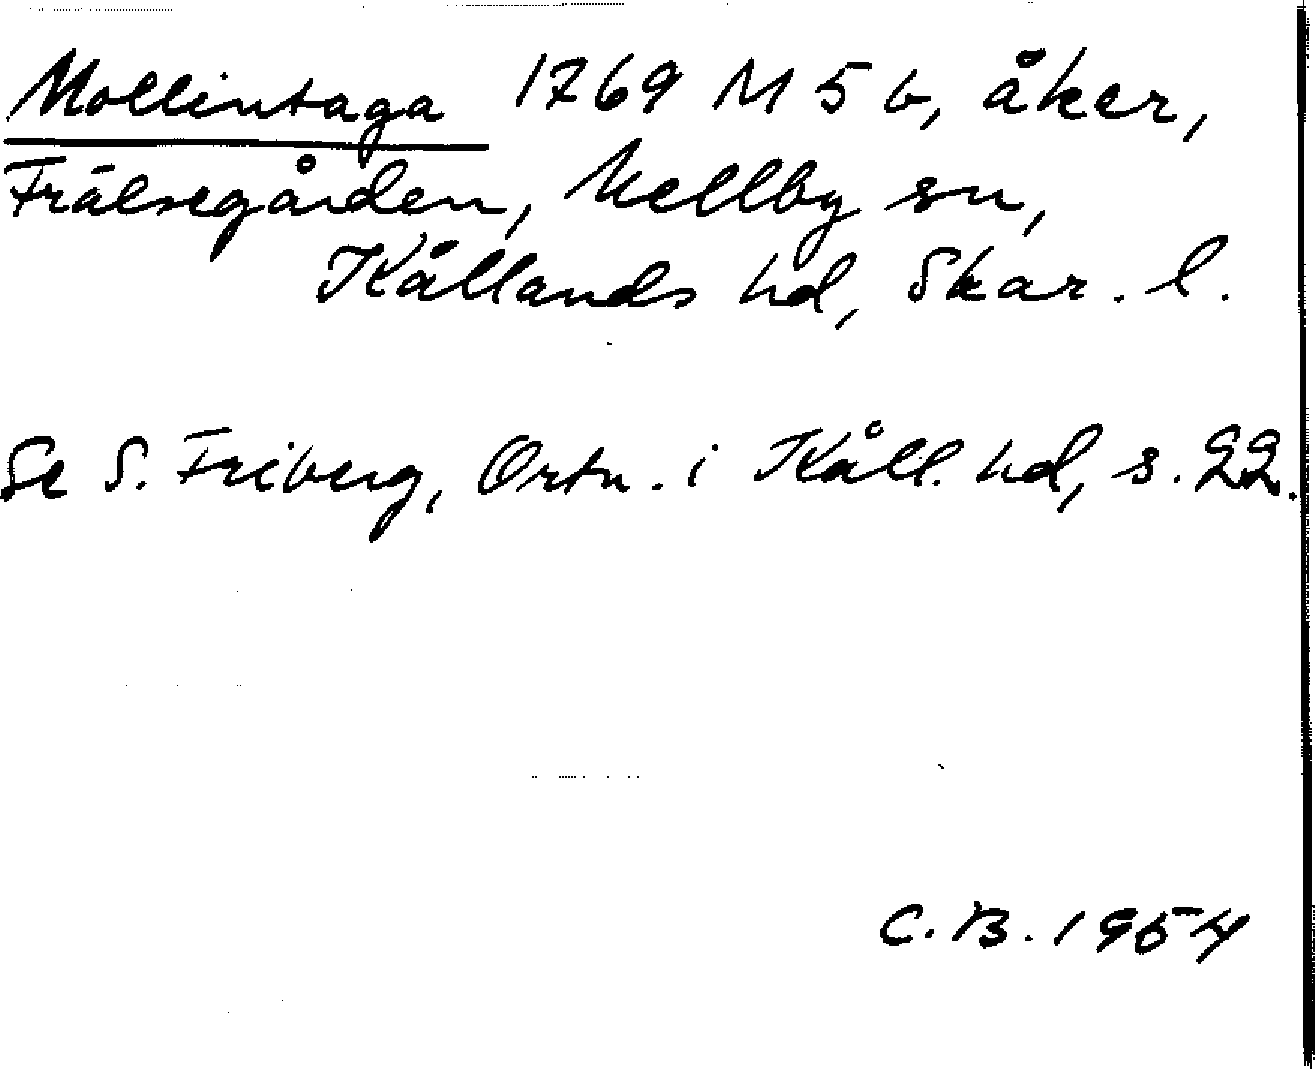 Mollintaga 1769 M 5 b, åker,
Frälsegården, Mellby sn,
Kållands hd, Skar. l.
Se S. Friberg, Ortn. i Kåll. hd, s. 22.
C. B. 1954